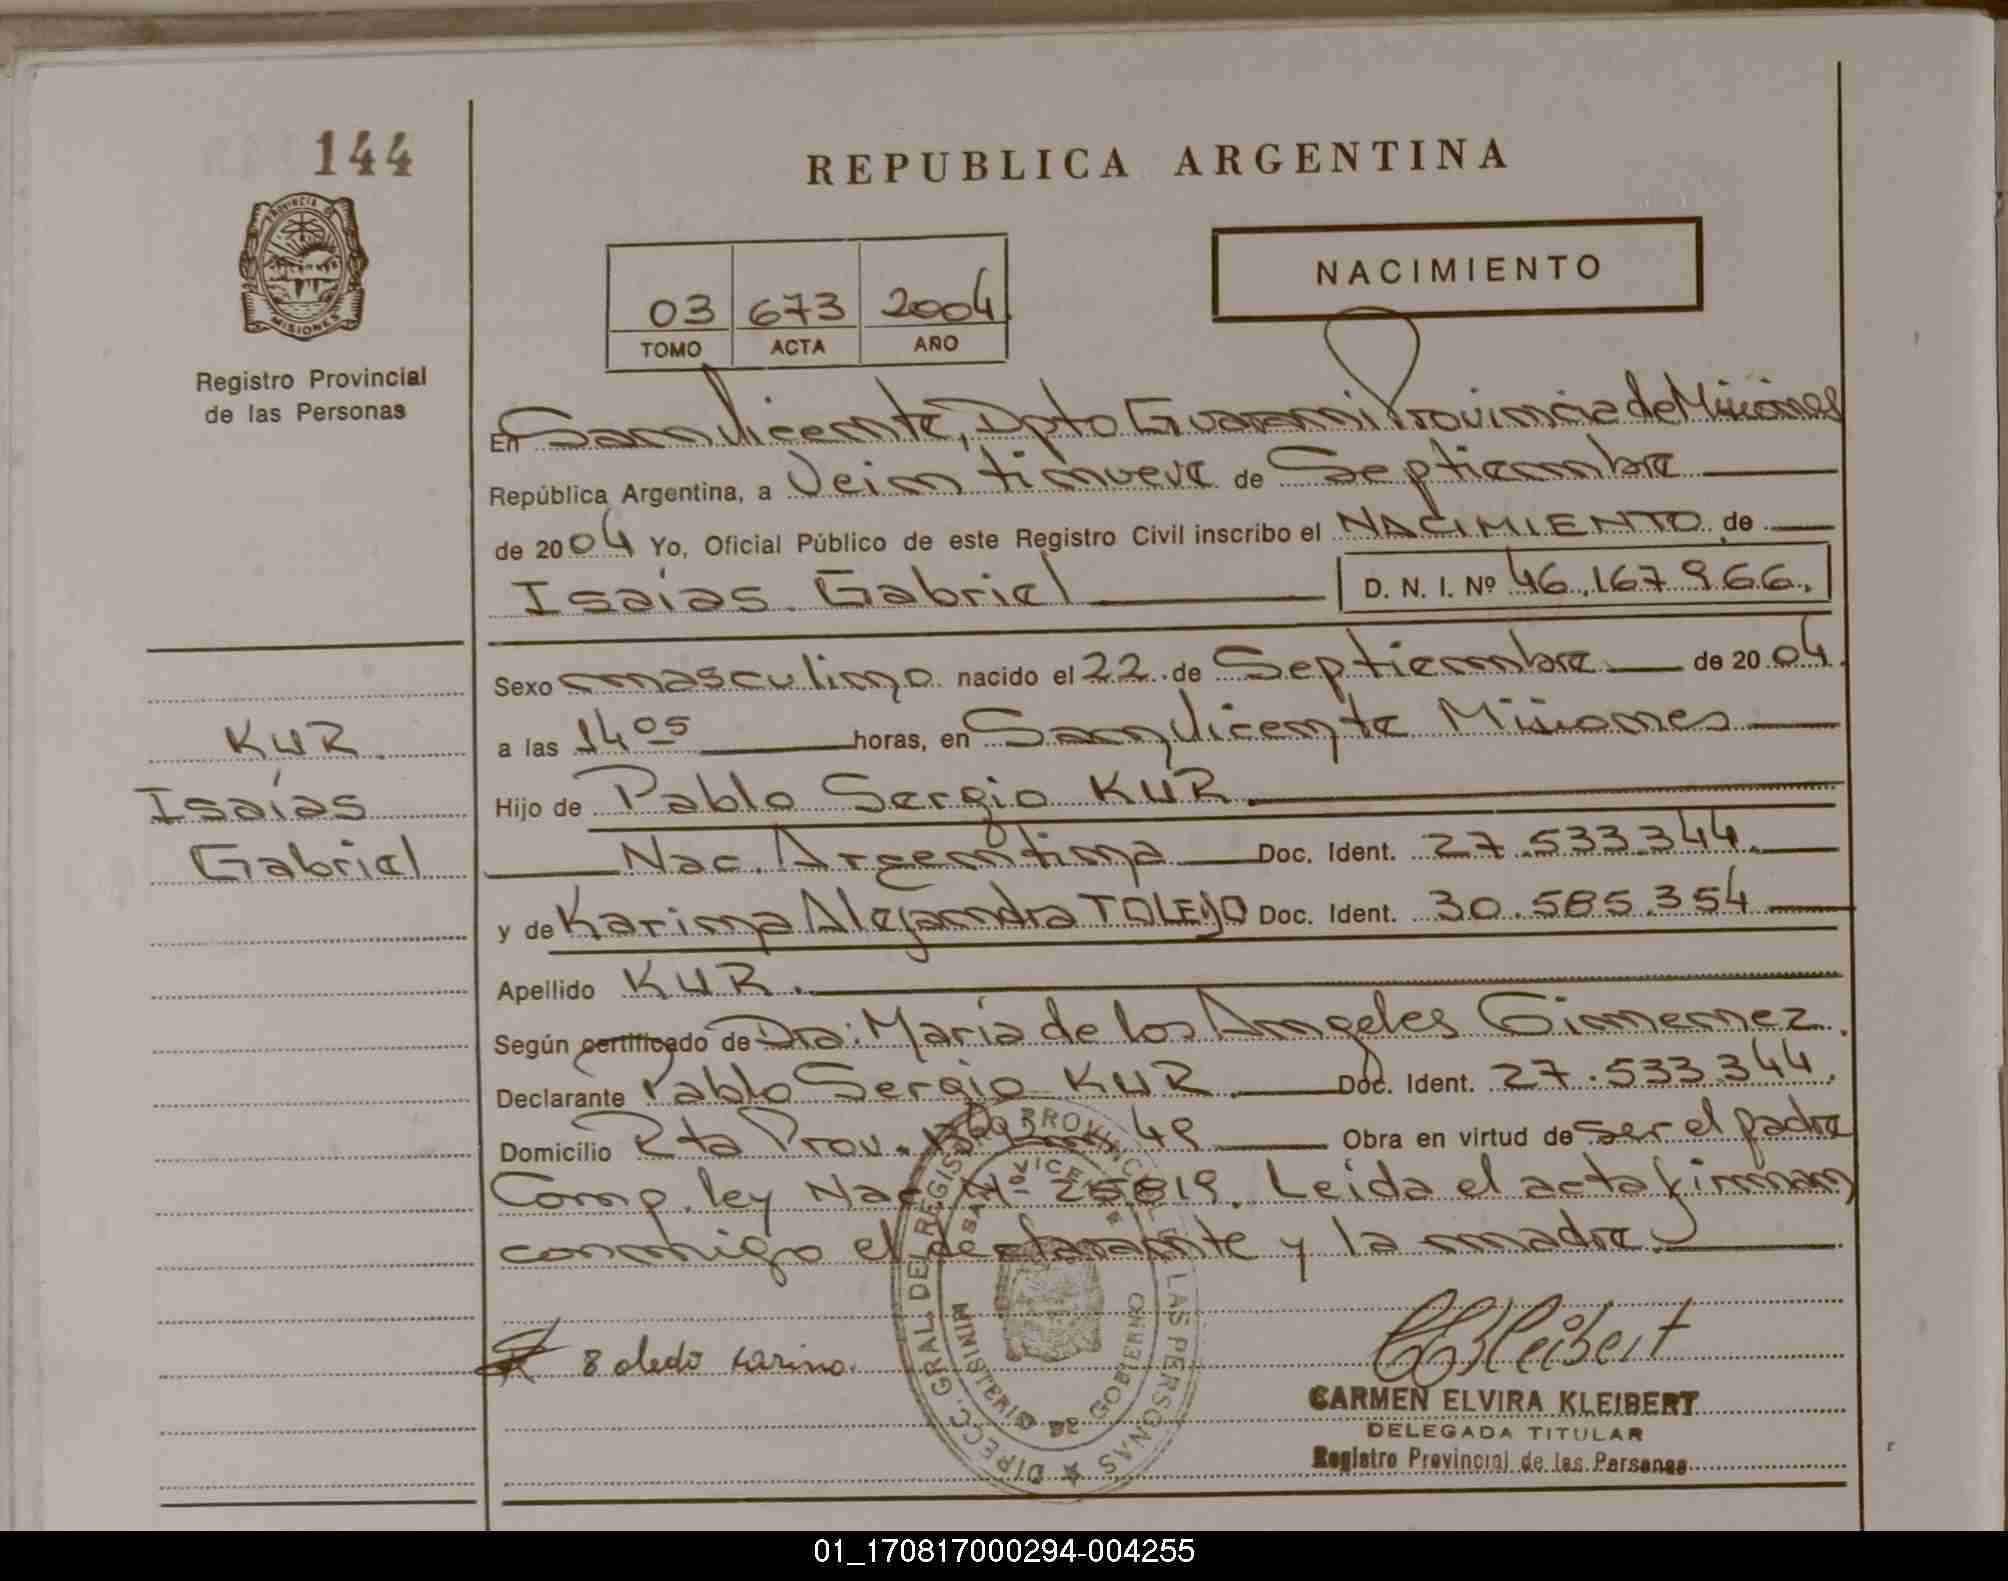 144
REPUBLICA ARGENTINA
PROVINCIA DE
MISIONES
Registro Provincial
de las Personas
NACIMIENTO
03 673 2004
TOMO ACTA AÑO
En San Vicente, Dpto Guarani Provincia de Misiones
República Argentina, a Veintinueve de Septiembre
de 2004 Yo, Oficial Público de este Registro Civil inscribo el NACIMIENTO de
Isaías Gabriel D. N. I. Nº 46.167.966.
Sexo masculino nacido el 22 de Septiembre de 2004
a las 14 05 horas, en San Vicente Misiones
KUR
Isaías
Gabriel
Hijo de Pablo Sergio KUR
Nac. Argentina Doc. Ident. 27.533.344.
y de Karina Alejandra TOLEDO Doc. Ident. 30.585.354
Apellido KUR.
Según certificado de Dra: María de los Angeles Gimenez.
Declarante Pablo Sergio KUR Doc. Ident. 27.533.344.
Domicilio Rta Prov. Obra en virtud de ser el padre
Comp. ley Nac Nº 25819. Leída el acta firman
conmigo el declarante y la madre.
DIRECC. GRAL. DEL REGISTRO PROVINCIAL DE LAS PERSONAS
MINISTERIO DE GOBIERNO
SAN VICENTE
CKleibert
CARMEN ELVIRA KLEIBERT
DELEGADA TITULAR
Registro Provincial de las Personas
01_170817000294-004255